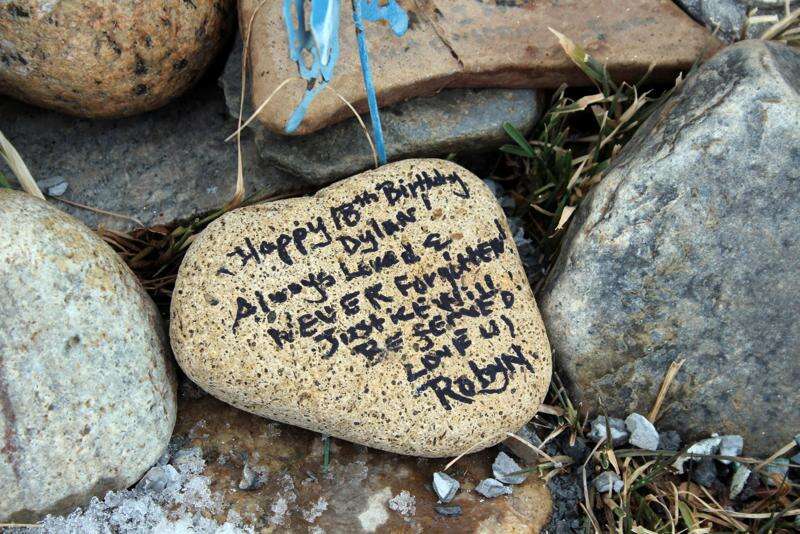 Happy 18th Birthday
Dylan,
Always Loved &
NEVER Forgotten
Justice Will
BE SERVED
LOVE U)
RobyN